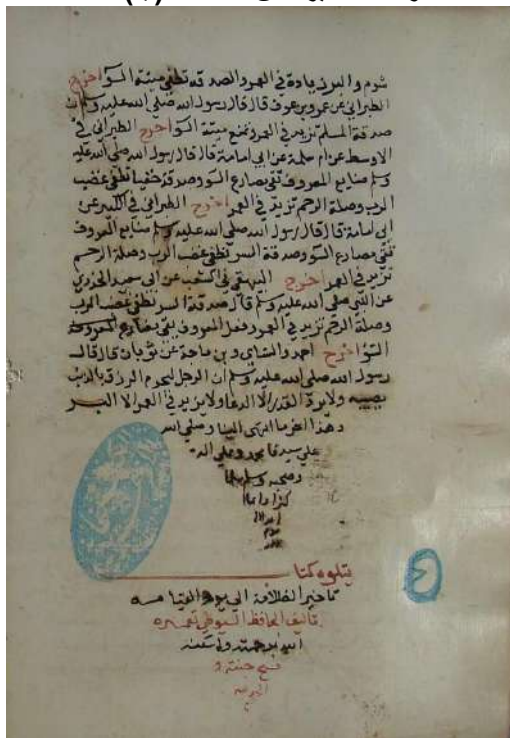 شوم والبر زيادة في العمر والصدقة تطفي ميتة السو اخرج
الطبراني عن عمرو بن عوف قال قال رسول الله صلى الله عليه وسلم ان
صدقة المسلم تزيد في العمر وتمنع ميتة السو اخرج الطبراني في
الاوسط عن ام سلمة عن ابي امامة قال قال رسول الله صلى الله عليه
وسلم صنايع المعروف تقي مصارع السو وصدقة خفيا تطفي غضب
الرب وصلة الرحم تزيد في العمر اخرج الطبراني في الكبير عن
ابي امامة قال قال رسول الله صلى الله عليه وسلم صنايع المعروف
تقي مصارع السو وصدقة السر تطفي غضب الرب وصلة الرحم
تزيد في العمر اخرج البيهقي في الشعب عن ابي سعيد الخدري
عن النبي صلى الله عليه وسلم قال صدقة السر تطفي غضب الرب
وصلة الرحم تزيد في العمر وفعل المعروف يقي مصارع
السو اخرج احمد والنساي وبن ماجة عن ثوبان قال قال
رسول الله صلى الله عليه وسلم ان الرجل ليحرم الرزق بالذنب
يصيبه ولا يرد القدر الا الدعا ولا يزيد في العمر الا البر
وهذا اخر ما انتهى الينا وصلى الله
على سيدنا محمد وعلى اله
وصحبه وسلم تسليما
كثيرا دايما
يتلوه كتا
تاخير الظلامة الى يوم القيامـه
تاليف الحافظ السيوطي تغمده
الله برحمته واسكنه
فسيح جنته